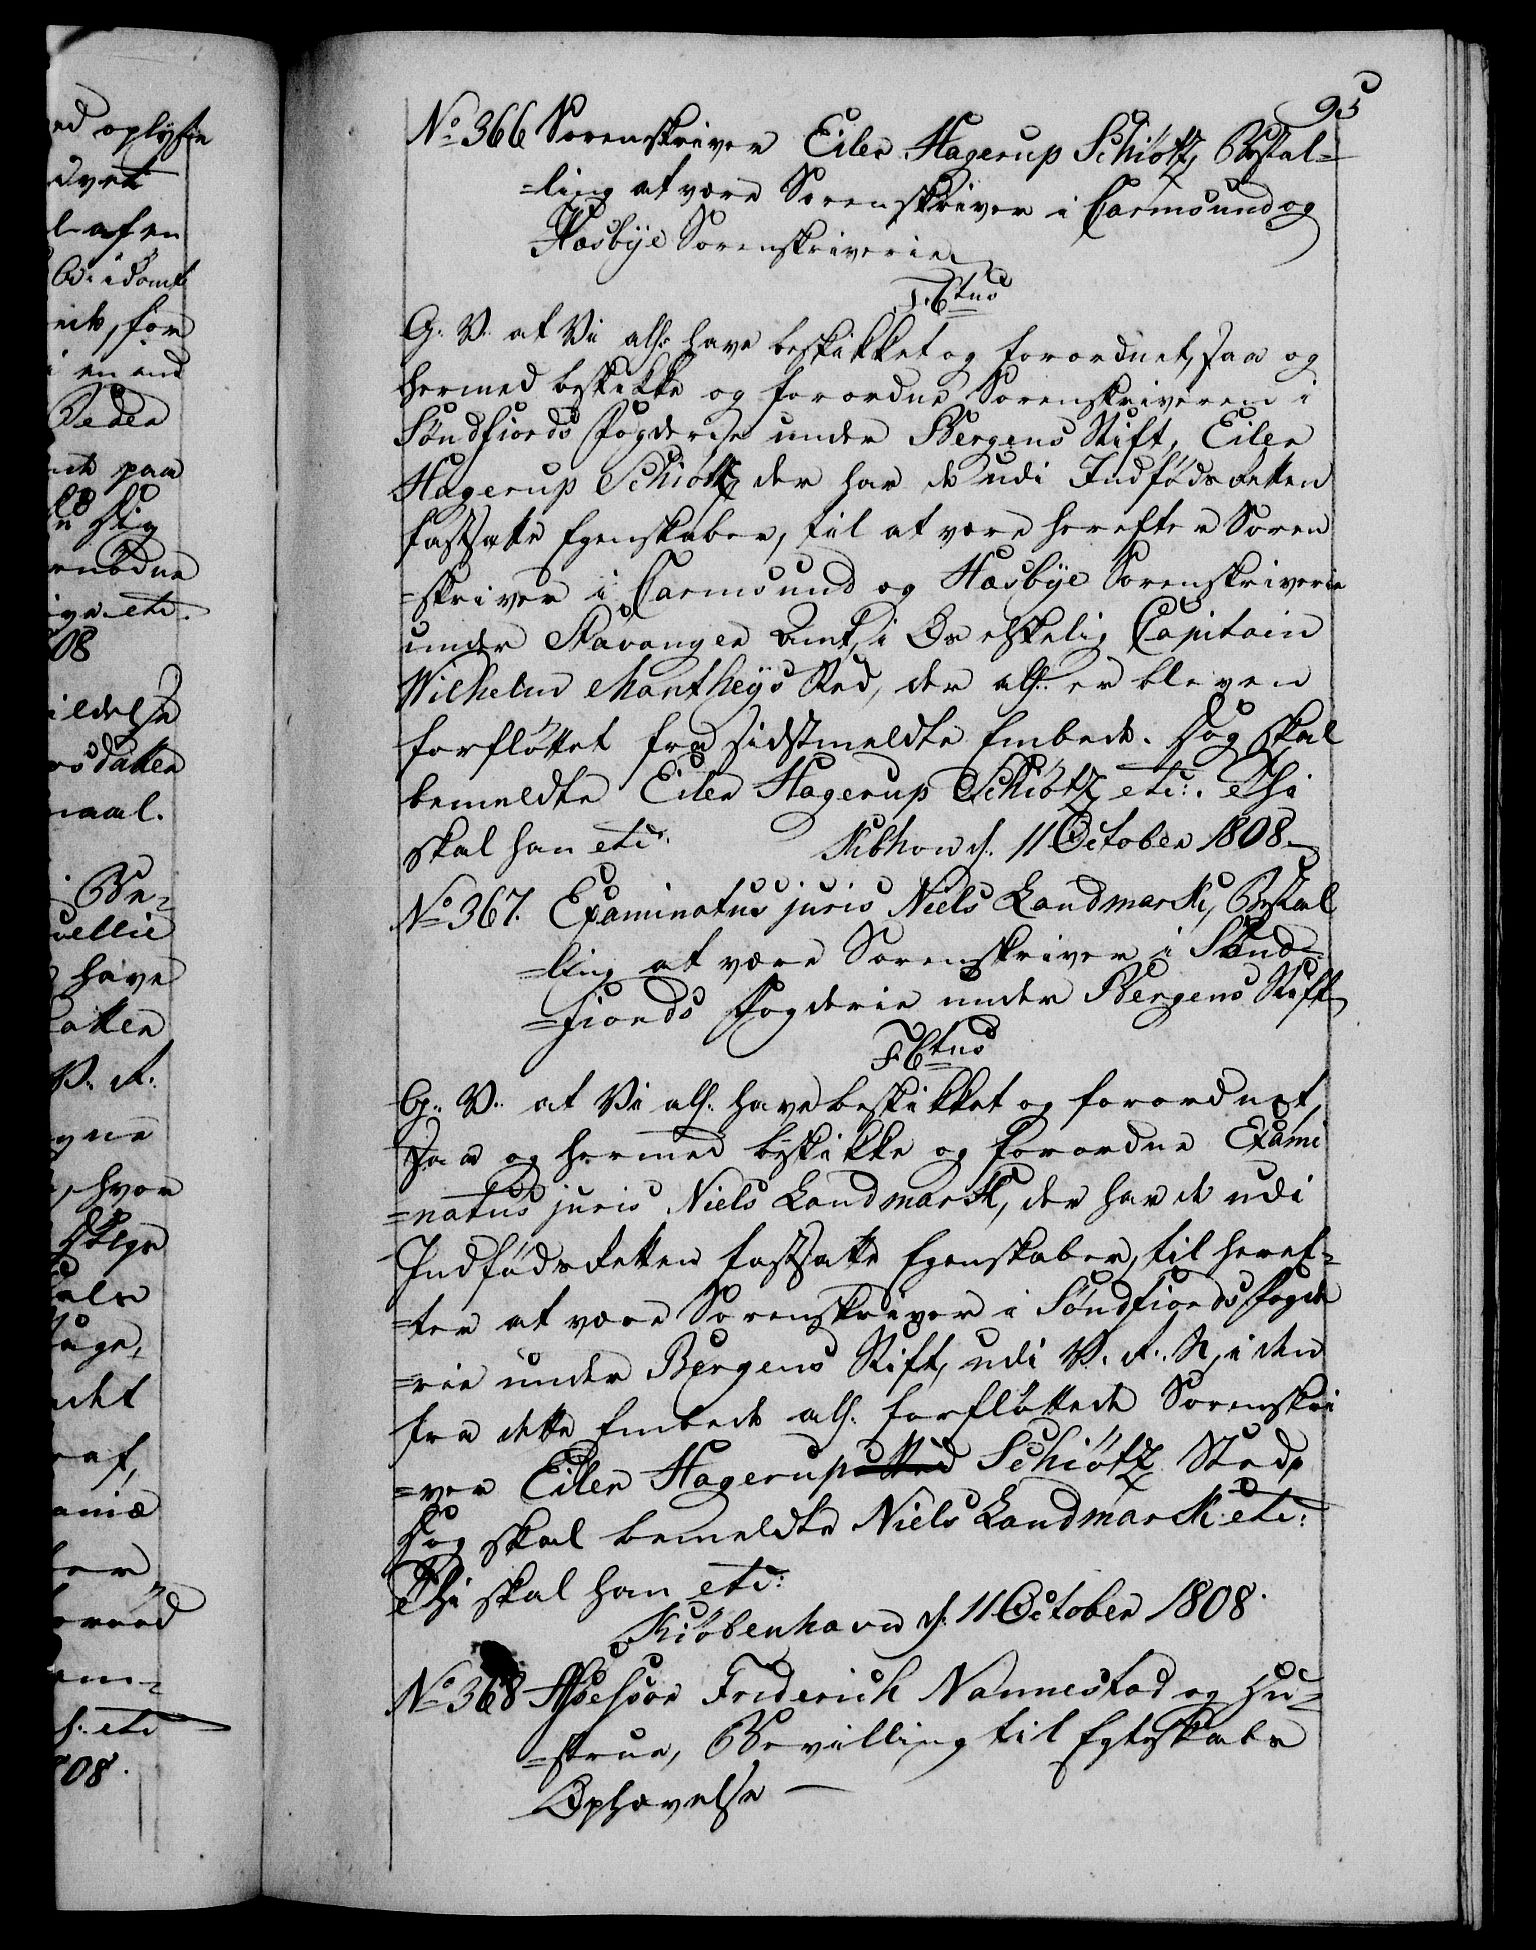 95
No 366 Sorenskriver Eiler Hagerup Schiøtz, Bestal-
=ling at være Sorenskriver i Carmsund og
Hesbÿe Sorenskriverie
F. 6tus
G. V. at Vi als: have beskikket og forordnet, saa og
hermed beskikke og forordne Sorenskriveren i
Søndfiords Fogderie under Bergens Stift, Eiler
Hagerup Schiøtz der har de udi Indfødsretten
fastsatte Egenskaber, til at være herefter Soren
=skriver i Carmsund og Hesbÿe Sorenskriverie
under Stavanger Amt, i Os elskelig Capitain
Wilhelm Mantheÿs Sted, der als: er bleven
forfløttet fra sidstmeldte Embede. Dog skal
bemeldte Eiler Hagerup Schiøtz etc:. Thi
skal han etc: Kibhavn d. 11 October 1808.
No 367. Examinatus juris Niels Landmark, Bestal
=ling at være Sorenskriver i Sønd-
=fiords Fogderie under Bergens Stift
F. 6tus
G. V. at Vi als. have beskikket og forordnet,
saa og hermed beskikke og forordne Exami
=natus juris Niels Landmark, der har de udi
Indfødsretten fastsatte Egenskaber, til heref-
=ter at være Sorenskriver i Søndfiords Fogde
=rie under Bergens Stift, udi V. R. N, i den
fra dette Embede als. forfløttede Sorenskri
=ver Eiler Hagerup Sted Schiøtz Sted,
Dog skal bemeldte Niels Landmark etc:
Thi skal han etc:
Kiøbenhavn d. 11 October 1808.
No 368 Assessor Friderich Nannestad og Hu-
=strue, Bevilling til Egteskabs
Ophævelse